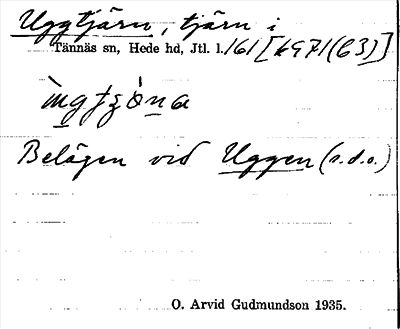 Uggtjärn, tjärn i
Tännäs sn, Hede hd, Jtl. l. 161 [6971(63)]
Belägen vid Uggen (s.d.o.)
O. Arvid Gudmundson 1935.